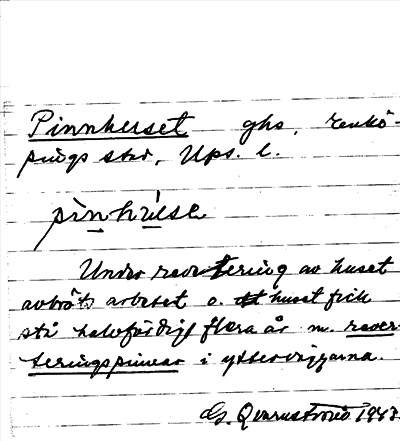 Pinnhuset ghs, Enkö-
pings stad, Ups. l.
pinhusə
Under revetering av huset
avbröts arbetet o. huset fick
stå halvfärdigt flera år m. rever-
teringspinnar i ytterväggarna.
G. 1943